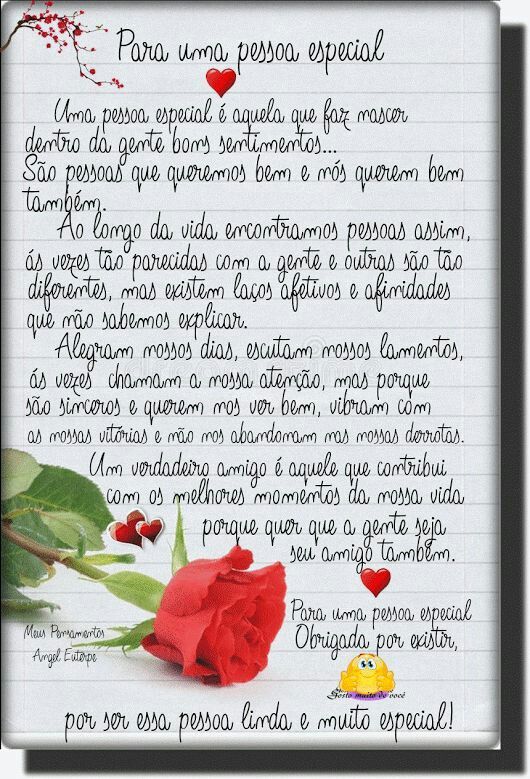 Para uma pessoa especial
Uma pessoa especial é aquela que faz nascer
dentro da gente bons sentimentos...
São pessoas que queremos bem e nós querem bem
também.
Ao longo da vida encontramos pessoas assim,
ás vezes tão parecidas com a gente e outras são tão
diferentes, mas existem laços afetivos e afinidades
que não sabemos explicar.
Alegram nossos dias, escutam nossos lamentos,
ás vezes chamam a nossa atenção, mas porque
são sinceros e querem nos ver bem, vibram com
as nossas vitórias e não nos abandonam nas nossas derrotas.
Um verdadeiro amigo é aquele que contribui
com os melhores momentos da nossa vida
porque quer que a gente seja
seu amigo também.
Para uma pessoa especial
Obrigada por existir,
Meus Pensamentos
Angel Euterpe
Gosto muito de você
por ser essa pessoa linda e muito especial!